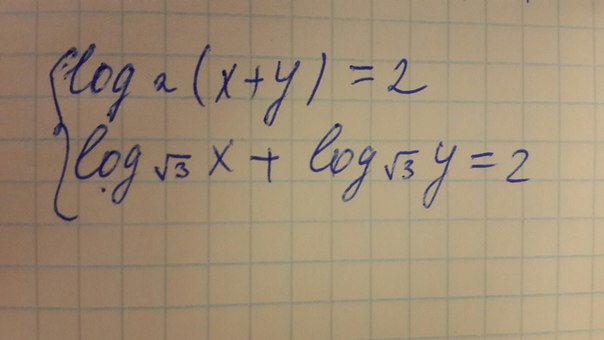 log₂(x+y) = 2
log√3 x + log√3 y = 2